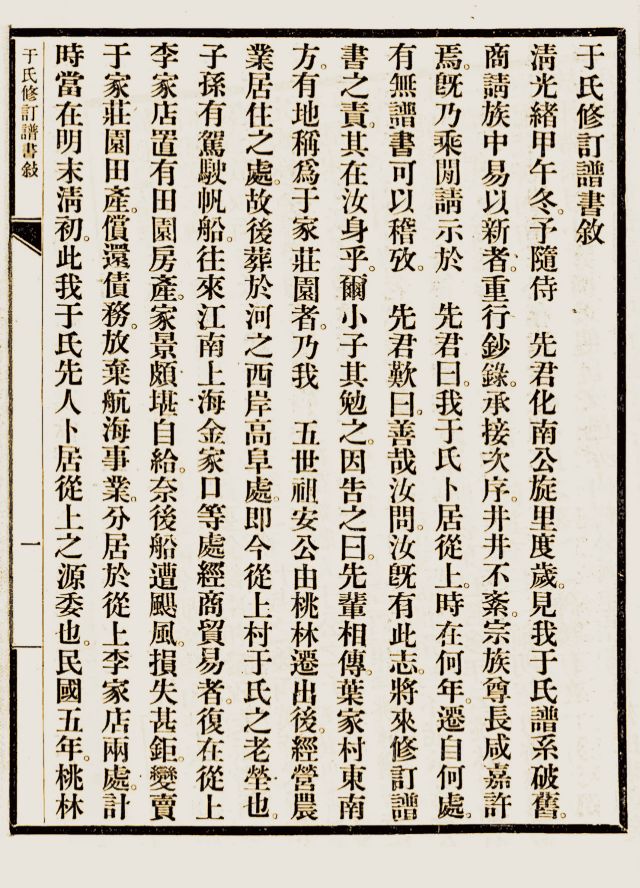 于氏修訂譜書敘
淸光緒甲午冬。予隨侍　先君化南公旋里度歲。見我于氏譜系破舊。
商請族中易以新者。重行鈔錄。承接次序。井井不紊。宗族尊長咸嘉許
焉。旣乃乘閒請示於　先君曰。我于氏卜居從上。時在何年。遷自何處。
有無譜書可以稽攷　先君歎曰。善哉汝問。汝旣有此志。將來修訂譜
書之責。其在汝身乎。爾小子其勉之。因告之曰。先輩相傳。葉家村東南
方。有地稱爲于家莊園者。乃我　五世祖安公由桃林遷出後。經營農
業居住之處。故後葬於河之西岸高阜處。卽今從上村于氏之老塋也。
子孫有駕駛帆船。往來江南上海金家口等處。經商貿易者。復在從上
李家店置有田園房產。家景頗堪自給。奈後船遭颶風。損失甚鉅。變賣
于家莊園田產。償還債務。放棄航海事業。分居於從上李家店兩處。計
時當在明末淸初。此我于氏先人卜居從上之源委也。民國五年。桃林
于氏修訂譜書敘
一